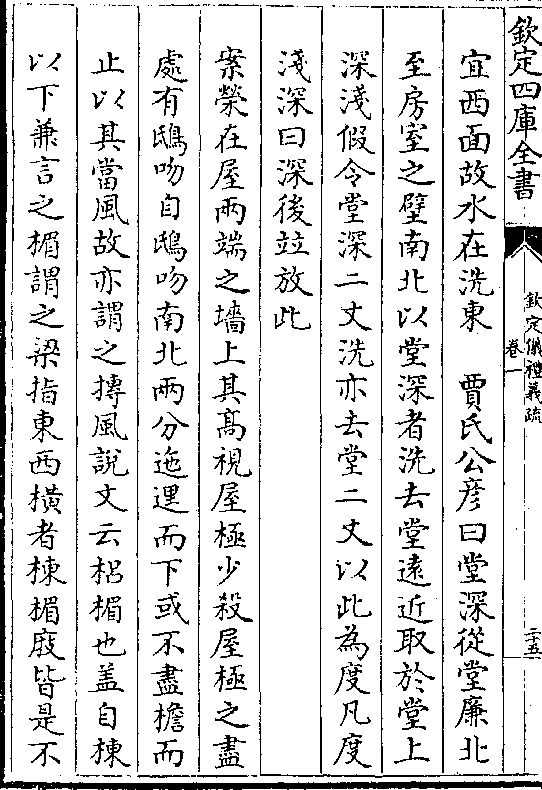 欽定四庫全書
欽定儀禮義疏
卷一
二十五
宜西面故水在洗東　賈氏公彦曰堂深從堂廉北
至房室之壁南北以堂深者洗去堂遠近取於堂上
深淺假令堂深二丈洗亦去堂二丈以此為度凡度
淺深曰深後竝放此
案榮在屋兩端之墻上其髙視屋極少殺屋極之盡
處有鴟吻自鴟吻南北兩分迤邐而下或不盡檐而
止以其當風故亦謂之摶風說文云梠楣也盖自棟
以下兼言之楣謂之梁指東西横者棟楣庪皆是不